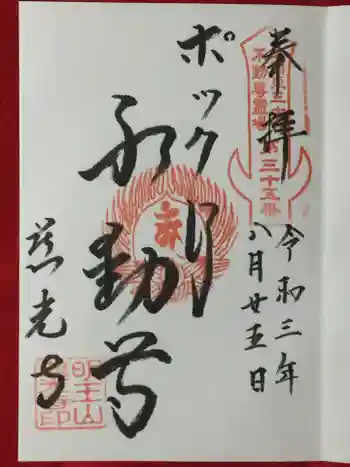 奉拝
令和三年
八月廿五日
ポックリ
不動尊
慈光寺
不動尊霊場
第三十五番
明王山